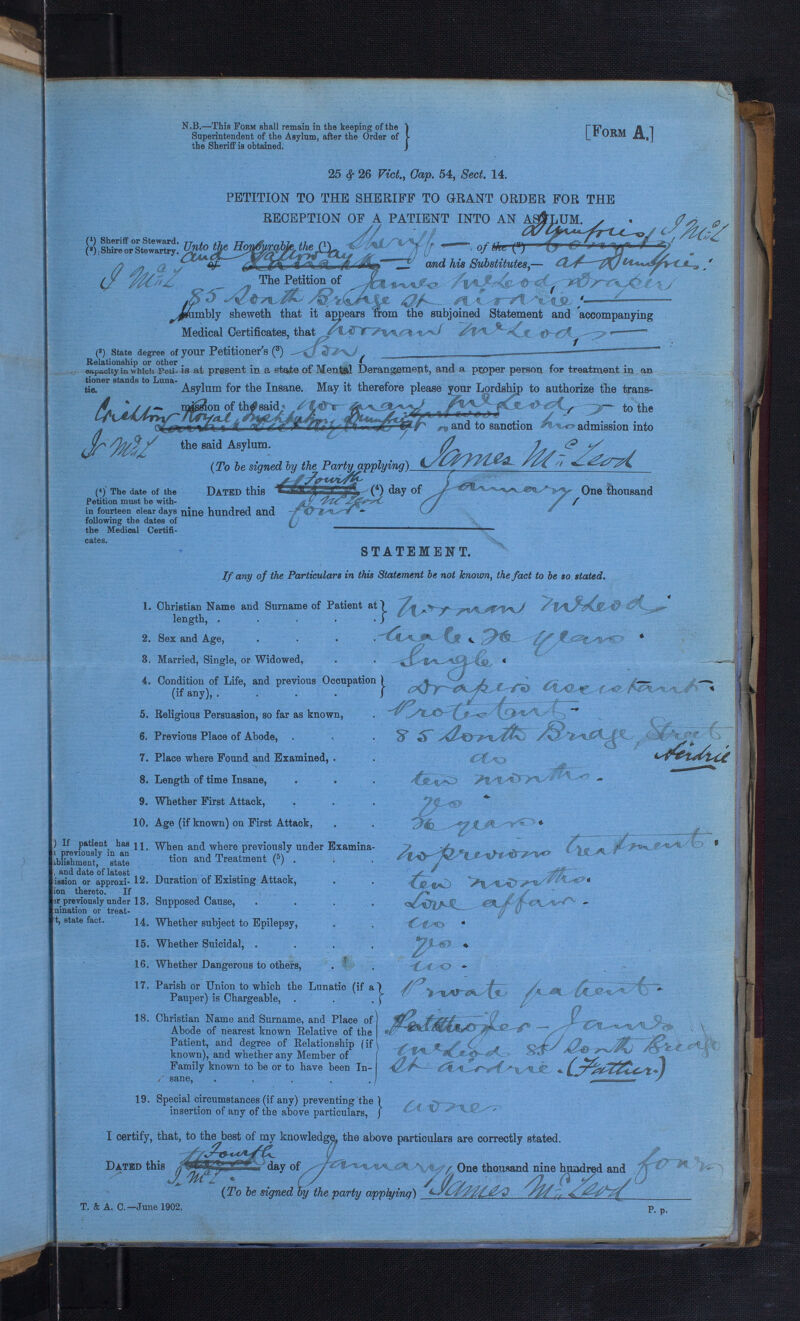 N.B.—This Form shall remain in the keeping of the
Superintendent of the Asylum, after the Order of
the Sheriff is obtained.
[Form A.]
25 & 26 Vict., Cap. 54, Sect. 14.
PETITION TO THE SHERIFF TO GRANT ORDER FOR THE
RECEPTION OF A PATIENT INTO AN ASYLUM.
(1) Sheriff or Steward.
(2) Shire or Stewartry.
Unto the Honourable the (1) Sheriff — of the (2) Dumfries J McL
and Galloway — and his Substitutes,— at Dumfries:
J McL
The Petition of James McLeod, Draper
85 South Bridge St airdrie:
Humbly sheweth that it appears from the subjoined Statement and accompanying
Medical Certificates, that Norman McLeod,
(3) State degree of
Relationship or other
capacity in which Peti-
tioner stands to Luna-
tic.
your Petitioner's (3) Son,
is at present in a state of Mental Derangement, and a proper person for treatment in an
Asylum for the Insane. May it therefore please your Lordship to authorize the trans-
mission of the said Norman McLeod, to the
Crichton Royal Institution Dumfries and to sanction his admission into
J McL
the said Asylum.
(To be signed by the Party applying) James McLeod
(4) The date of the
Petition must be with-
in fourteen clear days
following the dates of
the Medical Certifi-
cates.
DATED this Fourth (4) day of January, One thousand
J McLeod
nine hundred and four
STATEMENT.
If any of the Particulars in this Statement be not known, the fact to be so stated.
1. Christian Name and Surname of Patient at length, . Norman McLeod
2. Sex and Age, Male. 36 years.
3. Married, Single, or Widowed, Single.
4. Condition of Life, and previous Occupation (if any), . Drapers assistant.
5. Religious Persuasion, so far as known, Protestant.
6. Previous Place of Abode, . 85 South Bridge Street
Airdrie
7. Place where Found and Examined, . do
8. Length of time Insane, ten months.
9. Whether First Attack, yes
10. Age (if known) on First Attack, 36 years.
) If patient has
previously in an
blishment, state
, and date of latest
ission or approxi-
ion thereto. If
er previously under
mination or treat-
t, state fact.
11. When and where previously under Examina-
tion and Treatment (5) . no previous treatment.
12. Duration of Existing Attack, ten months.
13. Supposed Cause, Love affair.
14. Whether subject to Epilepsy, no.
15. Whether Suicidal, . yes.
16. Whether Dangerous to others, no.
17. Parish or Union to which the Lunatic (if a
Pauper) is Chargeable, . Private patient.
18. Christian Name and Surname, and Place of
Abode of nearest known Relative of the
Patient, and degree of Relationship (if
known), and whether any Member of
Family known to be or to have been In-
sane,
James
McLeod 85 South Bridge
St airdrie. (Father)
19. Special circumstances (if any) preventing the
insertion of any of the above particulars, none
I certify, that, to the best of my knowledge, the above particulars are correctly stated.
DATED this Fourth day of January, One thousand nine hundred and four
J. McL
(To be signed by the party applying) James McLeod
T. & A. C.—June 1902.
P. p.